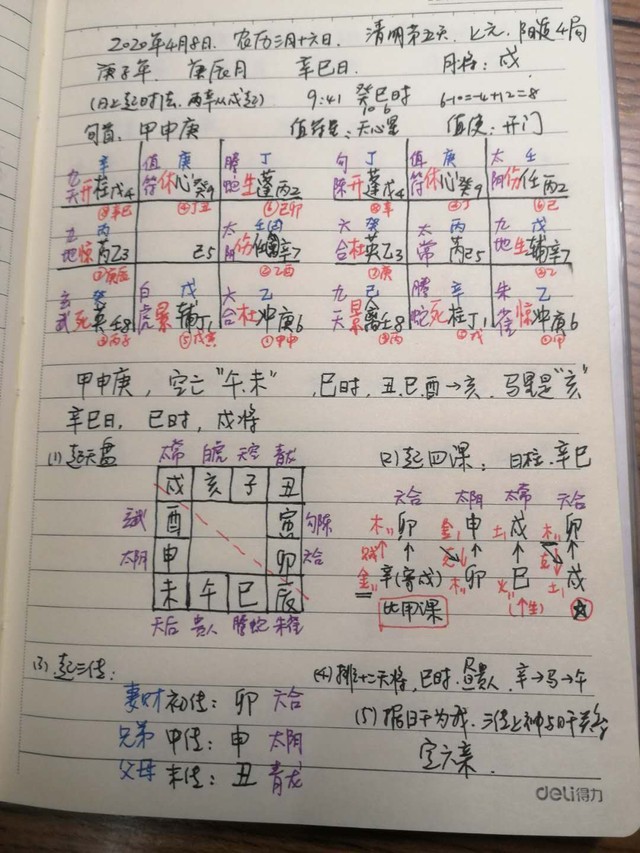 2020年4月8日. 农历三月十六日. 清明第五天, 上元, 阳遁4局
庚子年. 庚辰月 辛巳日. 月将: 戌
(日上起时法, 丙辛从戊起) 9:41 癸巳时 6-10=-4+12=8
10 6
旬首: 甲申庚 值符星: 天心星 值使: 开门
辛 值 庚 腾 丁 勾 丁 值 庚 太 壬
九天 开柱戊4 符 休心癸9 蛇 生蓬丙2 陈 开蓬戊4 符 休心癸9 阴 伤任丙2
九 丙 太 壬 六 癸 太 丙 九 戊
地 惊芮乙3 己5 阴 辛7 合 杜英乙3 常 芮己5 地 生辅辛7
玄 癸 白 戊 六 乙 九 己 腾 辛 朱 乙
武 死英壬8 虎 景辅丁1 合 杜冲庚6 天 景禽壬8 蛇 死柱丁1 雀 惊冲庚6
甲申庚, 空亡"午.未" , 巳时, 丑.巳.酉→亥, 马星是"亥"
辛巳日, 巳时, 戌将
(1) 起天盘
太常 白虎 天空 青龙
戌 亥 子 丑
玄武 酉 寅 勾陈
太阴 申 卯 六合
未 午 巳 辰
天后 贵人 腾蛇 朱雀
(2) 起四课: 日柱.辛巳
六合 太阴 太常 六合
木 卯 金 申 土 戌 木 卯
金 辛(寄戌) 木 卯 火 巳 土 戌
比用课 (上生)
(3) 起三传:
妻财 初传: 卯 六合
兄弟 中传: 申 太阴
父母 末传: 丑 青龙
(4) 排十二天将, 巳时. 昼贵人, 辛→马→午
(5) 据日干为我, 三传上神与日干
定六亲.
deli得力